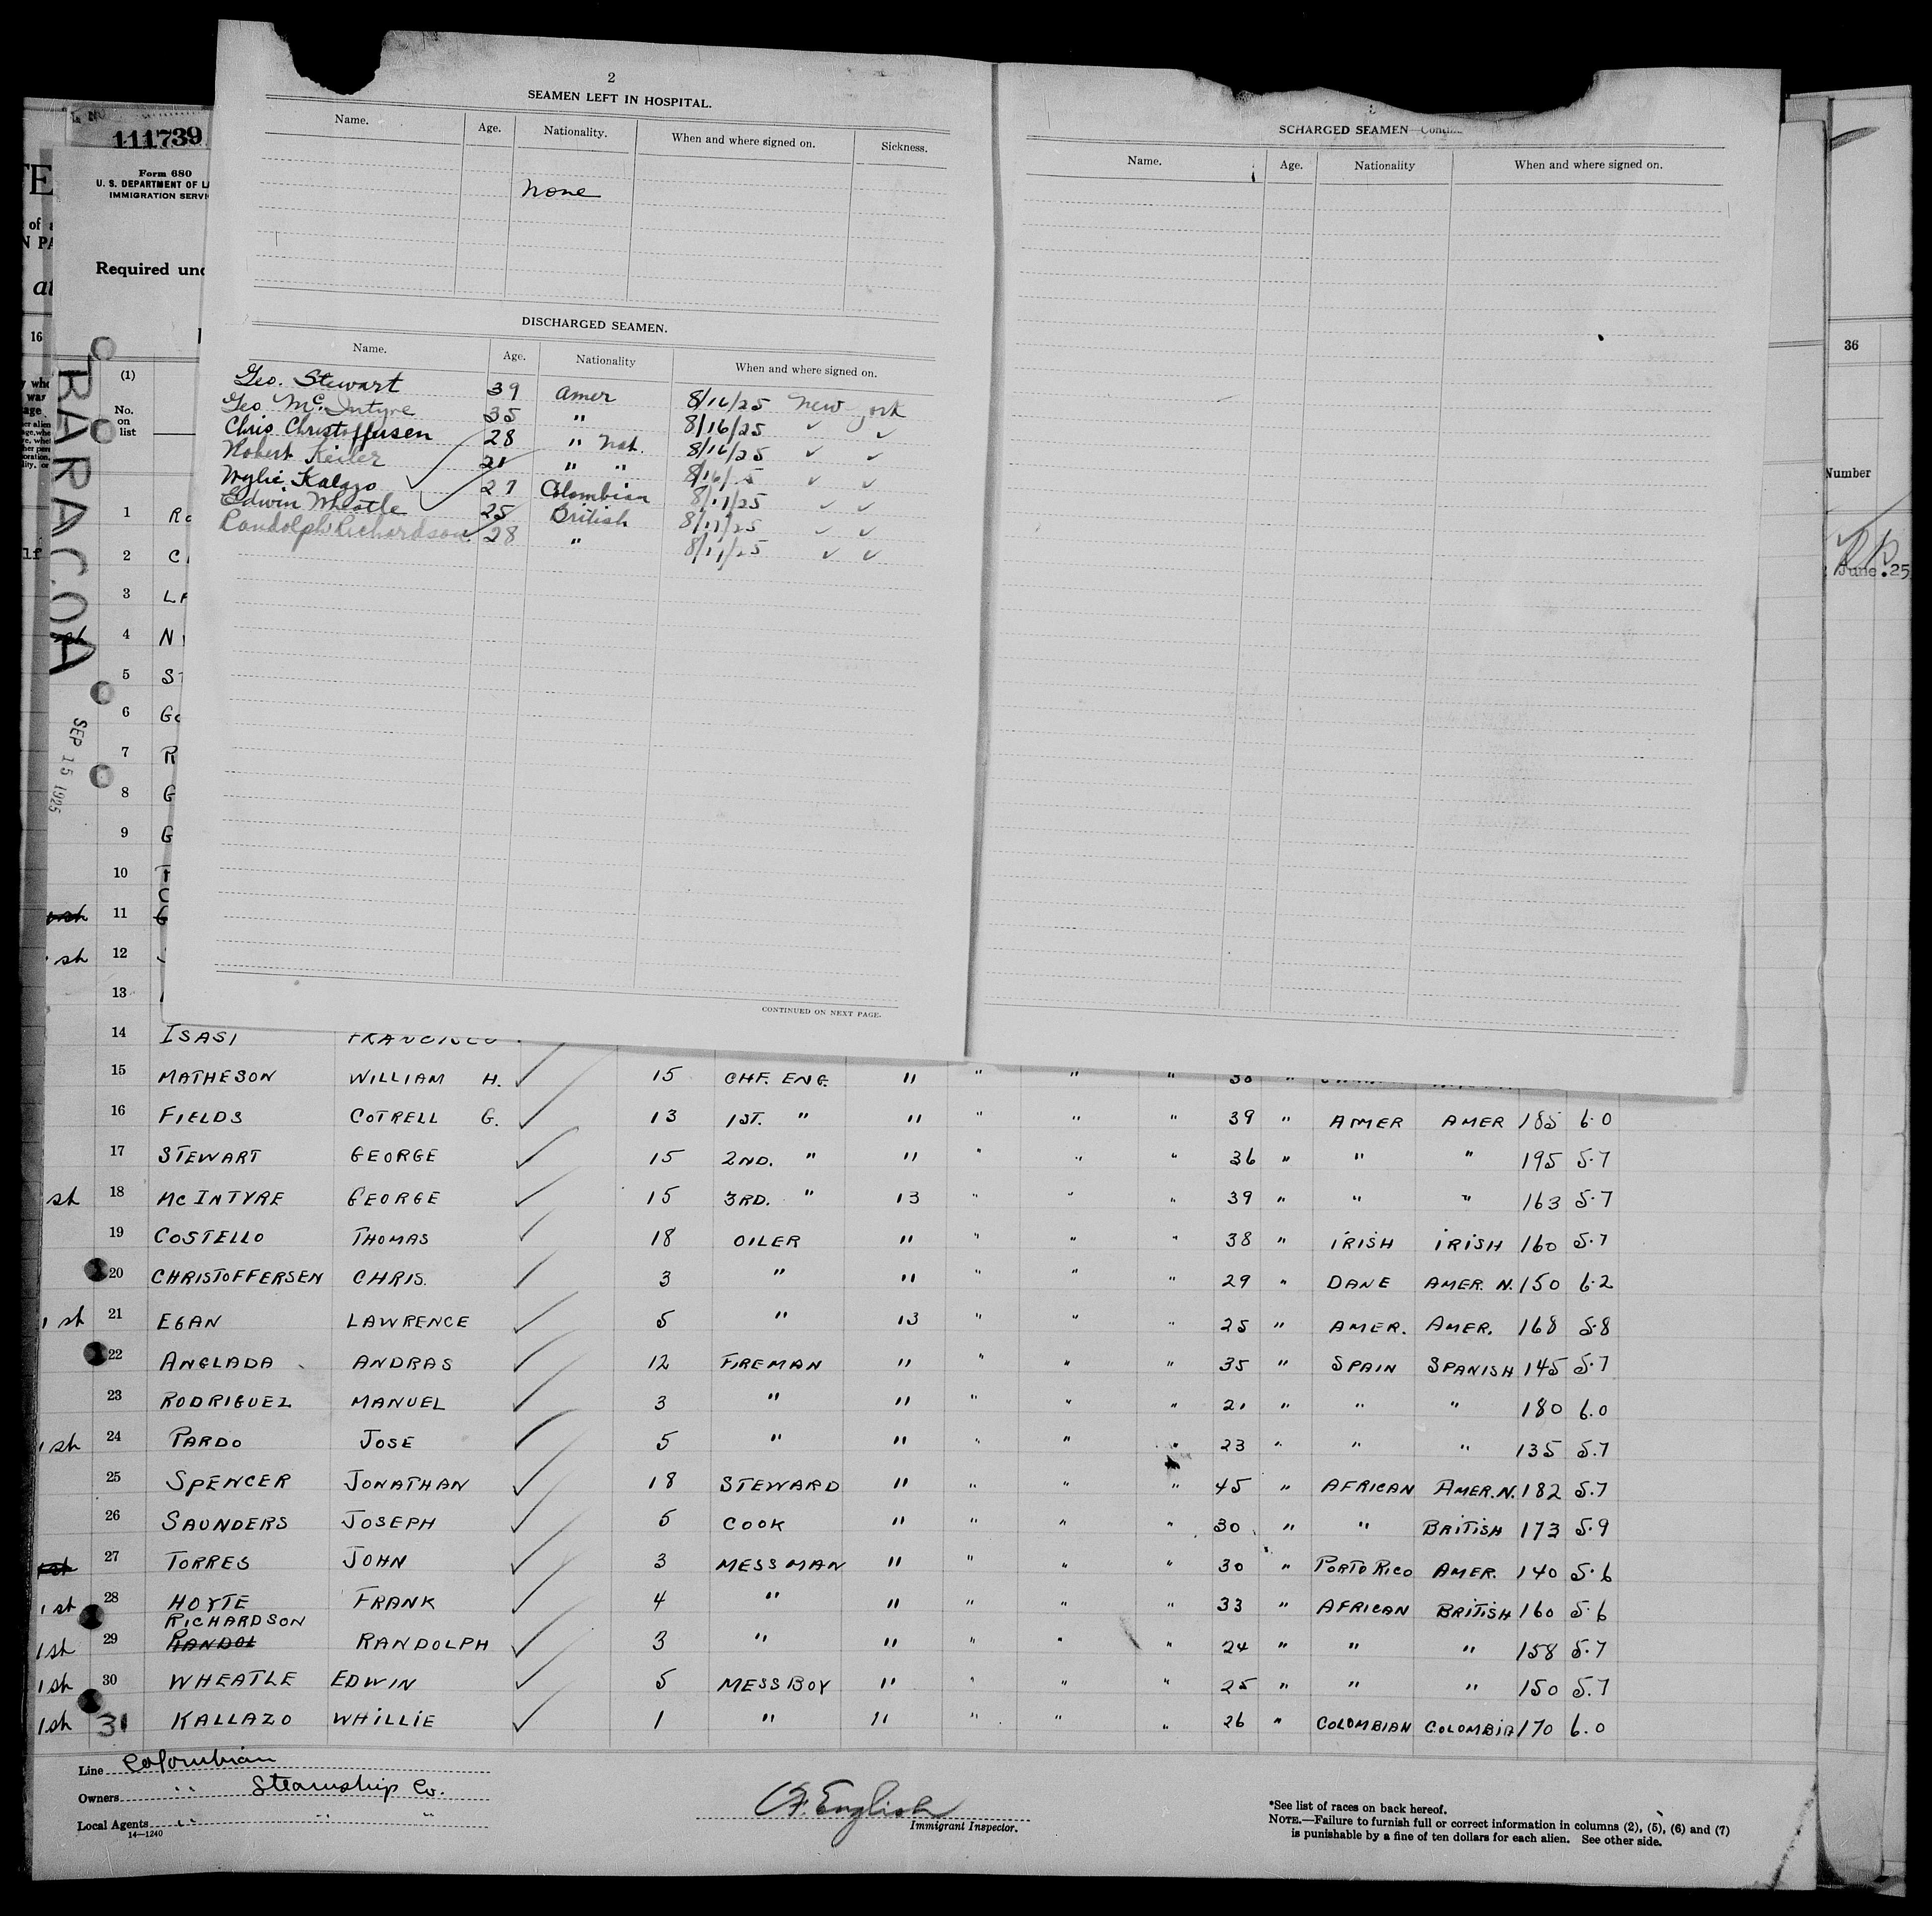 2
SEAMEN LEFT IN HOSPITAL.
Name. Age. Nationality. When and where signed on. Sickness.
None
DISCHARGED SEAMEN.
Name. Age. Nationality When and where signed on.
Geo. Stewart 39 Amer 8/16/25 New York
Geo McIntyre 35 " 8/16/25 ✓ ✓
Chris Christoffersen 28 " Nat. 8/16/25 ✓ ✓
Robert Keiler 21 " " 8/16/25 ✓ ✓
Wylie Kalazo 27 Colombian 8/17/25 ✓ ✓
Edwin Wheatle 25 British 8/17/25 ✓ ✓
Randolph Richardson 28 " 8/17/25 ✓ ✓
CONTINUED ON NEXT PAGE.
SCHARGED SEAMEN—Contin
Name. Age. Nationality When and where signed on.
111739
Form 680
U. S. DEPARTMENT OF LA
IMMIGRATION SERVI
Required und
BARACOA
SEP 15 1925
TE
of a
N PA
at
16
36
Number
June.25
(1)
No.
on
list
1 Ro
2 C
3 LA
4 N
5 ST
6 Go
7 R
8 G
9 G
10
11 G
1st 12
13
14 ISASI FRANCISCO
15 MATHESON WILLIAM H. ✓ 15 CHF. ENG. " " " " 38 "
16 FIELDS COTRELL G. ✓ 13 1ST. " " " " " 39 " AMER AMER 185 6.0
17 STEWART GEORGE ✓ 15 2ND. " " " " " 36 " " " 195 5.7
st 18 McINTYRE GEORGE ✓ 15 3RD. " 13 " " " 39 " " " 163 5.7
19 COSTELLO THOMAS ✓ 18 OILER " " " " 38 " IRISH IRISH 160 5.7
20 CHRISTOFFERSEN CHRIS. ✓ 3 " " " " 29 " DANE AMER. N. 150 6.2
1st 21 EGAN LAWRENCE ✓ 5 " 13 " " " 25 " AMER. AMER. 168 5.8
22 ANGLADA ANDRAS ✓ 12 FIREMAN " " " " 35 " SPAIN SPANISH 145 5.7
23 RODRIGUEZ MANUEL ✓ 3 " " " " " 21 " " " 180 6.0
1st 24 PARDO JOSE ✓ 5 " " " " " 23 " " " 135 5.7
25 SPENCER JONATHAN ✓ 18 STEWARD " " " " 45 " AFRICAN AMER. N. 182 5.7
26 SAUNDERS JOSEPH ✓ 5 COOK " " " " 30 " " BRITISH 173 5.9
1st 27 TORRES JOHN ✓ 3 MESSMAN " " " " 30 " PORTO RICO AMER. 140 5.6
1st 28 HOYTE FRANK ✓ 4 " " " " " 33 " AFRICAN BRITISH 160 5.6
RICHARDSON
1st 29 RANDOL RANDOLPH ✓ 3 " " " " " 24 " " " 158 5.7
1st 30 WHEATLE EDWIN ✓ 5 MESSBOY " " " " 25 " " " 150 5.7
1st 31 KALLAZO WHILLIE ✓ 1 " 11 " " " 26 " COLOMBIAN COLOMBIA 170 6.0
Line Colombian
Owners " Steamship Co.
Local Agents " " "
14—1240
English
Immigrant Inspector.
*See list of races on back hereof.
NOTE.—Failure to furnish full or correct information in columns (2), (5), (6) and (7)
is punishable by a fine of ten dollars for each alien. See other side.